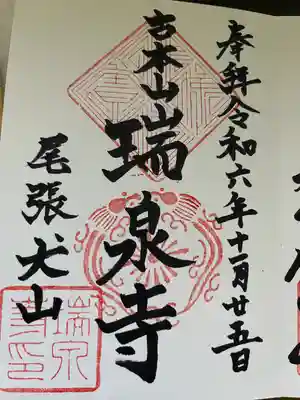 奉拝令和六年十一月廿五日
吉本山
瑞泉寺
尾張犬山
瑞泉寺印